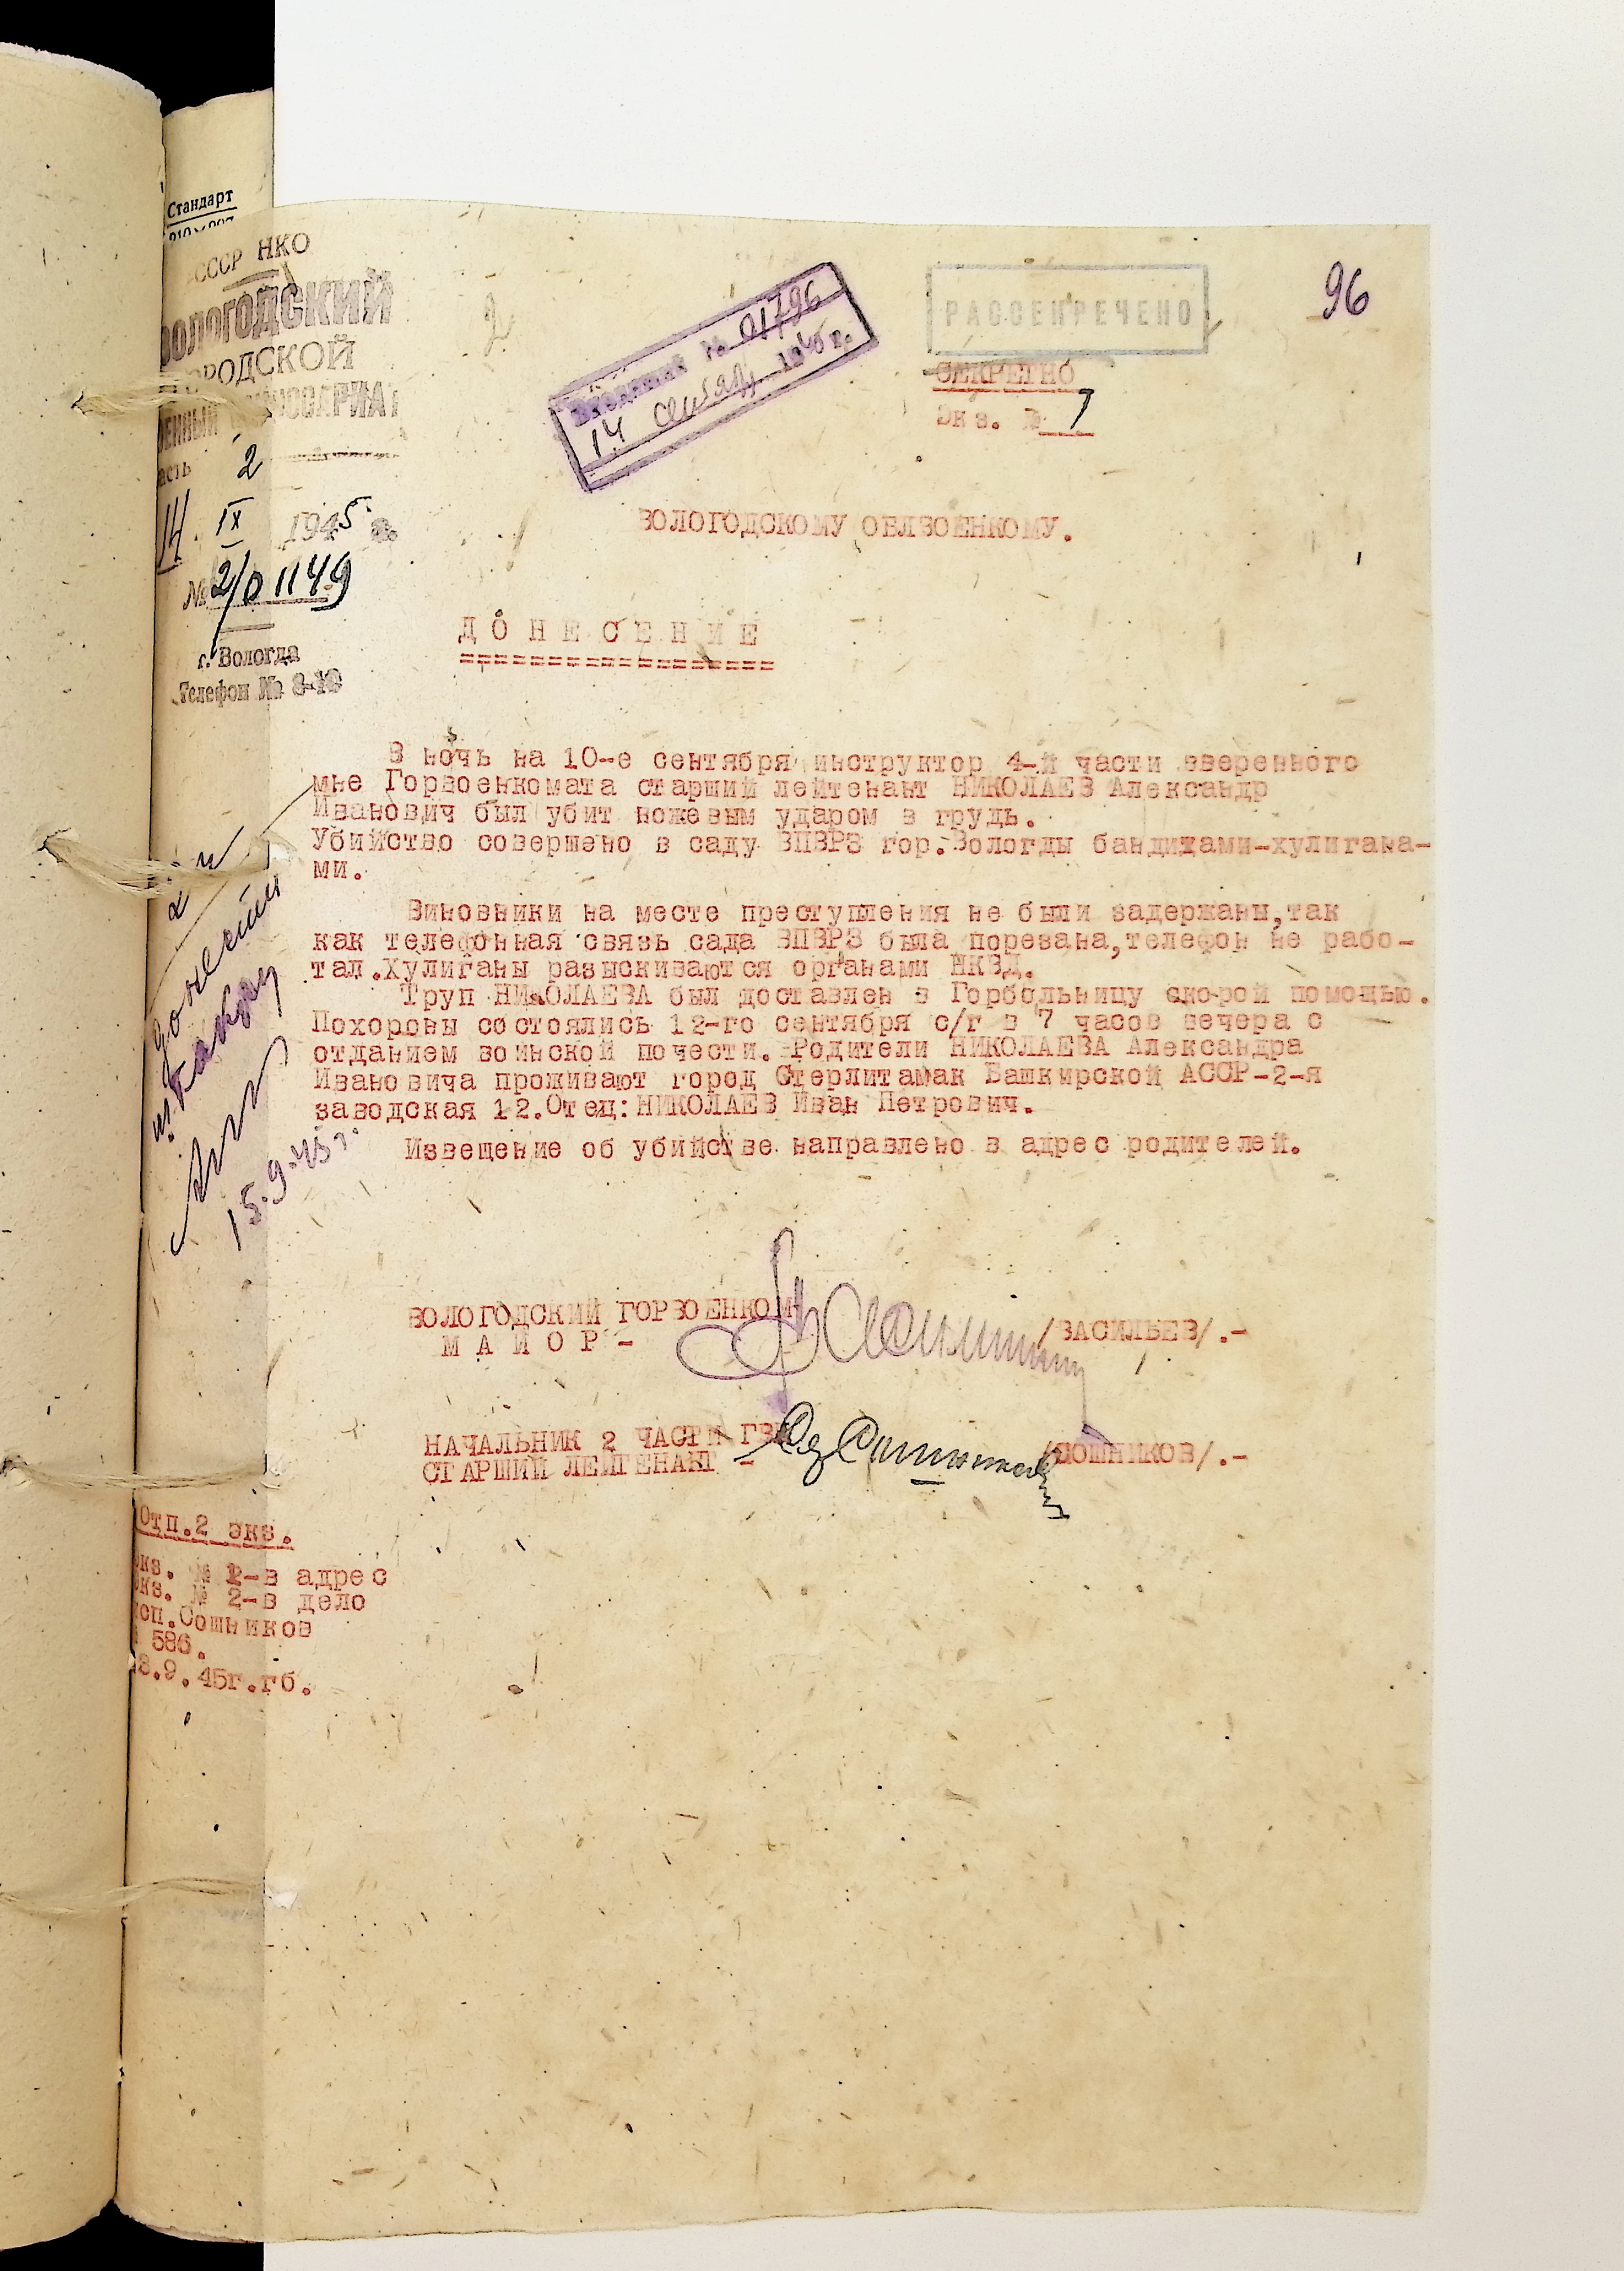 Стандарт
СССР НКО
ВОЛОГОДСКИЙ
ГОРОДСКОЙ
ВОЕННЫЙ КОМИССАРИАТ
часть 2
14 IX 1945 г.
№ 2/01149
г. Вологда
Телефон № 8-10
2
Входящий № 01796
14 1945 г.
РАССЕКРЕЧЕНО
96
СЕКРЕТНО
Экз. № 1
ВОЛОГОДСКОМУ ОБЛВОЕНКОМУ.
ДОНЕСЕНИЕ
==================
В ночь на 10-е сентября инструктор 4-й части вверенного
мне Горвоенкомата старший лейтенант НИКОЛАЕВ Александр
Иванович был убит ножевым ударом в грудь.
Убийство совершено в саду ВПВРЗ гор.Вологды бандитами-хулигана-
ми.
Виновники на месте преступления не были задержаны,так
как телефонная связь сада ВПВРЗ была порезана,телефон не рабо-
тал.Хулиганы разыскиваются органами НКВД.
Труп НИКОЛАЕВА был доставлен в Горбольницу скорой помощью.
Похороны состоялись 12-го сентября с/г в 7 часов вечера с
отданием воинской почести. Родители НИКОЛАЕВА Александра
Ивановича проживают город Стерлитамак Башкирской АССР-2-я
заводская 12.Отец:НИКОЛАЕВ Иван Петрович.
Извещение об убийстве направлено в адрес родителей.
15.9.45 г.
ВОЛОГОДСКИЙ ГОРВОЕНКОМ
МАЙОР - /ВАСИЛЬЕВ/.-
НАЧАЛЬНИК 2 ЧАСТИ ГВК
СТАРШИЙ ЛЕЙТЕНАНТ - /СОШНИКОВ/.-
Отп.2 экз.
экз. № 1-в адрес
экз. № 2-в дело
исп.Сошников
586.
3.9.45г.гб.